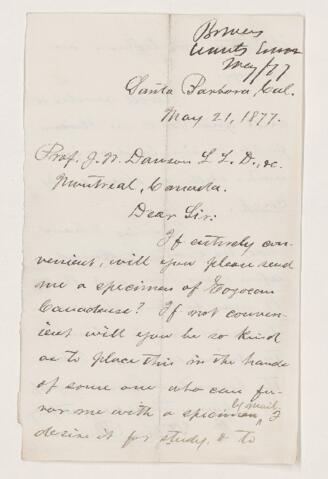 Bowers
Wants Eozoon
May/77
Santa Barbara, Cal.
May 21, 1877.
Prof. J. W. Dawson L L. D., &c.
Montreal, Canada.
Dear Sir:
If entirely con-
venient, will you please send
me a specimen of Eozoon
Canadense? If not conven-
ient will you be so kind
as to place this in the hands
of some one who can fa-
vor me with a specimen by mail. I
desire it for study, & to